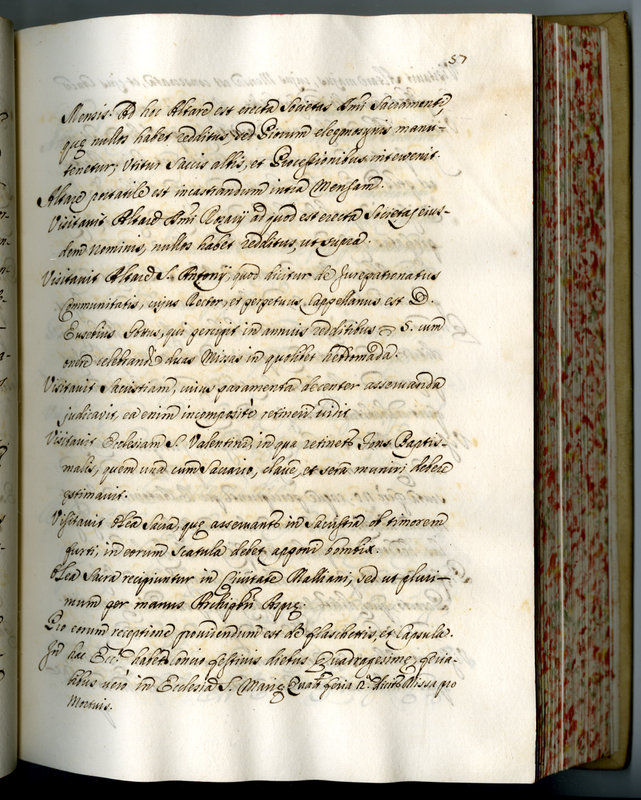 57
Mensis. Ad hoc Altare est erecta Societas Smi Sacramenti,
quę nullos habet redditus sed Piorum elegmosynis manu-
tenetur, Utitur Saccis albis, et Processionibus intervenit.
Altare portatile est incastrandum intra Mensam.
Visitavit Altare Smi Rosarij ad quod est erecta Societas eius-
dem nominis, nullos habet redditus, ut supra.
Visitavit Altare S. Antonij, quod dicitur de Iurepatronatus
Communitatis, cujus Rector, et perpetuus Cappellanus est D.
Eusebius, qui percipit in annuis redditibus 5. cum
onere celebrandi duas Missas in qualibet hebdomada.
Visitavit Sacristiam, cuius paramenta decenter asservanda
judicavit, ea enim incomposite retineri vidit.
Visitavit Ecclesiam S. Valentini, in qua retinetr Fons Baptis-
malis, quem una cum Sacrario, clave, et sera muniri debere
ęstimavit.
Visitavit Olea Sacra, quę asservantr in Sacristia ob timorem
furti, in eorum Scatula debet apponi bombix.
Olea Sacra recipiuntur in Civitate Malliani, sed ut pluri-
mum per manus Archipbri
Pro eorum receptione providendum est de flascheris, et Capsula.
In hac Eccla habetr Concio festivis diebus Quadragesimę, feria-
tibus vero in Ecclesia S. Marię feria 2a dicitr Missa pro
Mortuis.